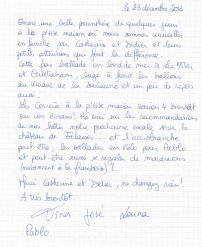 le 29 décembre 2016
Encore une belle parenthèse de quelques jours
à la p'tite maison où nous sommes accueillis
en famille par Catherine et Didier et leurs
petites attentions qui font la différence.
Cette fois ballade en bord de mer à
et Ouistreham, luge à fond les ballons
au viaduc de la Souleuvre et un peu de repos
aussi.
la p'tite maison saison 4 bientôt
sur vos écrans! Et oui sur les recommandations
de nos hôtes notre prochaine escale sera le
château de Falaise... et l'accrobranche
peut-être, les ballades en vélo pour Pablo
et peut être aussi se régaler de macarons
(notamment à la framboise)!
Merci Catherine et Didier, ne changez rien!
A très bientôt.
Tina José
Pablo